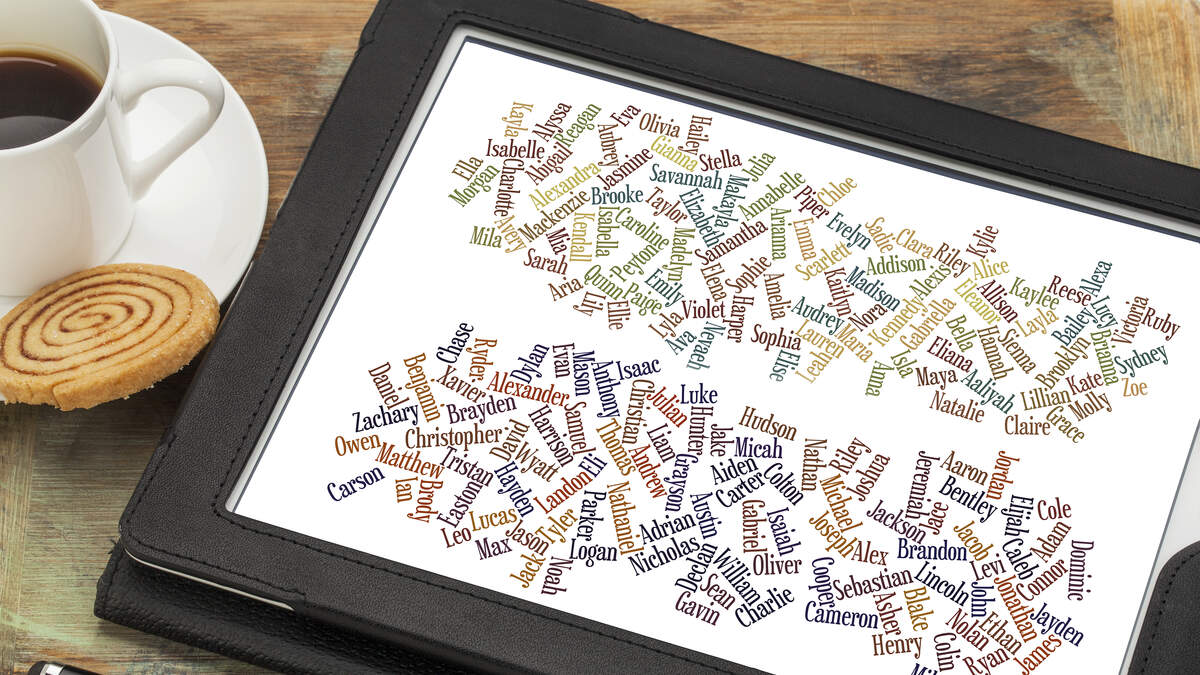 Kayla
Alyssa
Reagan
Eva
Olivia
Hailey
Isabelle
Abigail
Aubrey
Gianna
Stella
Julia
Ella
Morgan
Charlotte
Alexandra
Jasmine
Savannah
Makayla
Annabelle
Piper
Chloe
Avery
Mackenzie
Brooke
Taylor
Elizabeth
Arianna
Evelyn
Sadie
Clara
Riley
Kylie
Mila
Mia
Kendall
Isabella
Caroline
Madelyn
Samantha
Emma
Scarlett
Addison
Alexis
Alice
Sarah
Peyton
Quinn
Emily
Elena
Sophie
Kaitlyn
Madison
Eleanor
Allison
Kaylee
Reese
Alexa
Aria
Lily
Ellie
Paige
Lyla
Violet
Harper
Amelia
Audrey
Nora
Kennedy
Gabriella
Layla
Bailey
Lucy
Victoria
Ruby
Ava
Nevaeh
Sophia
Elise
Lauren
Maria
Leah
Isla
Anna
Bella
Eliana
Hannah
Sienna
Brooklyn
Brianna
Sydney
Maya
Aaliyah
Natalie
Lillian
Kate
Molly
Zoe
Claire
Grace
Chase
Ryder
Dylan
Evan
Mason
Anthony
Isaac
Daniel
Benjamin
Xavier
Alexander
Christian
Julian
Luke
Zachary
Brayden
Harrison
Samuel
Hunter
Jake
Hudson
Owen
Christopher
David
Thomas
Liam
Micah
Matthew
Tristan
Wyatt
Eli
Andrew
Grayson
Aiden
Carter
Colton
Nathan
Riley
Joshua
Carson
Ian
Brody
Easton
Hayden
Landon
Parker
Nathaniel
Adrian
Austin
Gabriel
Isaiah
Michael
Joseph
Jackson
Jeremiah
Jace
Aaron
Bentley
Jordan
Leo
Lucas
Max
Jason
Tyler
Jack
Noah
Logan
Nicholas
Declan
William
Oliver
Alex
Brandon
Jacob
Elijah
Caleb
Cole
Adam
Sean
Gavin
Charlie
Cooper
Cameron
Sebastian
Lincoln
Levi
Connor
Dominic
Asher
Blake
John
Jonathan
Jayden
Henry
Nolan
Ethan
Colin
Ryan
James